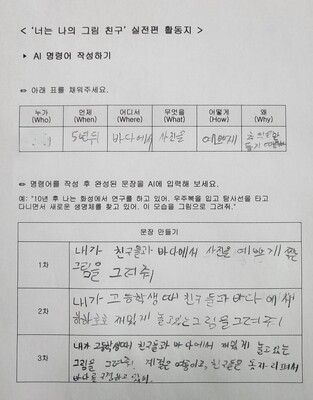 < '너는 나의 그림 친구' 실전편 활동지 >
▶ AI 명령어 작성하기
✏ 아래 표를 채워주세요.
누가 언제 어디서 무엇을 어떻게 왜
(Who) (When) (Where) (What) (How) (Why)
5년뒤 바다에서 사진을 예쁘게
✏ 명령어를 작성 후 완성된 문장을 AI에 입력해 보세요.
예: "10년 후 나는 화성에서 연구를 하고 있어. 우주복을 입고 탐사선을 타고
다니면서 새로운 생명체를 찾고 있어. 이 모습을 그림으로 그려줘."
문장 만들기
1차 내가 친구들과 바다에서 사진을 예쁘게 찍는
그림을 그려줘
2차 내가 고등학생때 친구들과 바다에서
재밌게 놀고있는 그림을 그려줘!
3차 내가 고등학생때 친구들과 바다에서 재밌게 놀고있는
그림을 그려줘. 계절은 여름이고, 친구들은 돗자리 펴서
바다를 구경하고 있어.